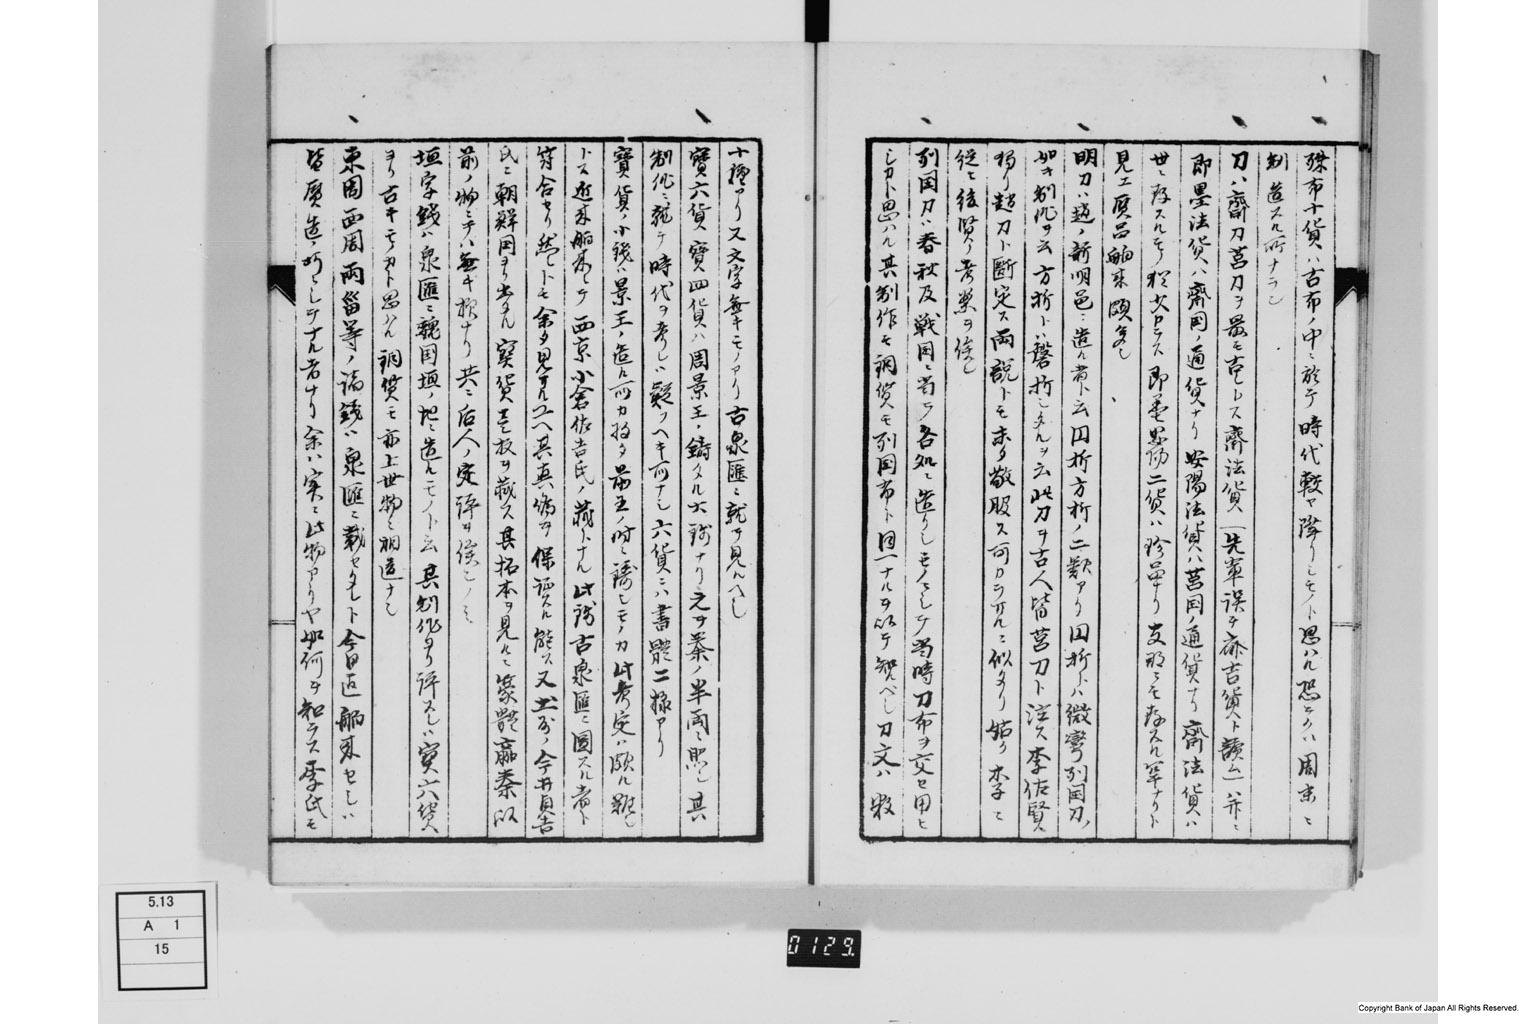 殊布十貨ハ古布ノ中ニ於テ時代較ヤ降リシモノト思ハル恐ラクハ周末ニ
制造スル所ナラン
刀ハ齋刀莒刀ヲ最モ古シトス齋法貨（先輩誤テ齋吉貨ト読ム）ハ并ニ
即墨法貨ハ齋国ノ通貨ナリ安陽法貨ハ莒国ノ通貨ナリ齋法貨ハ
世ニ存スルモノ稀少ナラス即墨安陽二貨ハ珍罕ナリ支那ニモ存スル罕ナリト
見エ贋品舶来頗多シ
明刀ハ趙ノ新明邑ニ造ル者ト云円折方折ノ二類アリ円折トハ微彎列国刀ノ
如キ制作ヲ云方折トハ磬折シタルヲ云此刀ヲ古人皆莒刀ト注ス李佐賢
独リ趙刀ト断定ス両説トモ未タ敬服ス可カラサルニ似タリ姑ク李ニ
従ヒ後賢ノ考案ヲ俟ツ
列国刀ハ春秋及戦国ニ当テ各処ニ造リシモノニシテ当時刀布ヲ交セ用ヒ
シカト思ハル其制作モ銅質モ列国布ト同一ナルヲ以テ知ルヘシ刀文ハ数
十種アリ又文字無キモノアリ古泉匯ニ就テ見ルヘシ
寶六貨寶四貨ハ周景王ノ鋳タル大銭ナリ之ヲ秦ノ半両ニ照シ其
制作ニ就テ時代ヲ考レハ疑フヘキ所ナシ六貨ニハ書體二様アリ
寶貨ノ小銭ハ景王ノ造ル所カ将タ前王ノ時ニ鋳シモノカ此考定ハ頗ル難シ
トス近来舶来シテ西京小倉佐吉氏ノ蔵トナル此銭古泉匯ニ図スル者ト
符合セリ然レトモ余タ見サルユヘ其真偽ヲ保証スル能ス又出羽ノ今井貞吉
氏ニ朝鮮国ヨリ出タル寶貨壱枚ヲ蔵ス其拓本ヲ見ルニ篆體嬴秦以
前ノ物ニテハ無キ様ナリ共ニ后人ノ定評ヲ俟ツノミ
垣字銭ハ泉匯ニ魏国垣ノ地ニ造ルモノト云其制作ヨリ評スレハ寶六貨
ヨリ古キモノカト思ハル銅質モ亦上世物ニ相違ナシ
東周西周両甾等ノ諸銭ハ泉匯ニ載セタレト今日迄舶来セシハ
皆贋造ノ所ニシテナル者ナリ余ハ実ニ此物アリヤ如何ヲ知ラス李氏モ
5.13
A 1
15
0129.
Copyright Bank of Japan All Rights Reserved.